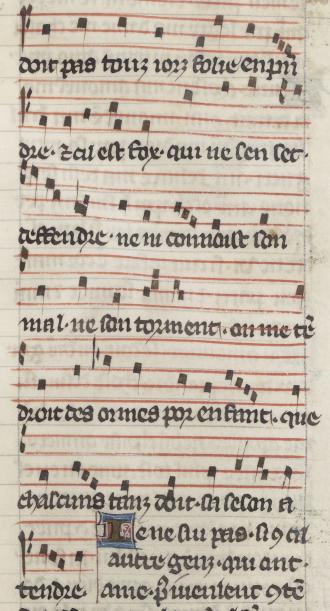 doit pas touz iorz folie enpn̄
dre· ⁊ cil est fox· qui ne sen set·
deffendre· ne ni connoist son
mal· ne son torment· on me tē
droit des ormes por enfant· que
chascuns tanz doit sa seson a
tendre.
Ie ne sui pas· si 9 cil
autre genz· qui ont·
ame· p̄ i uenlent 9tē